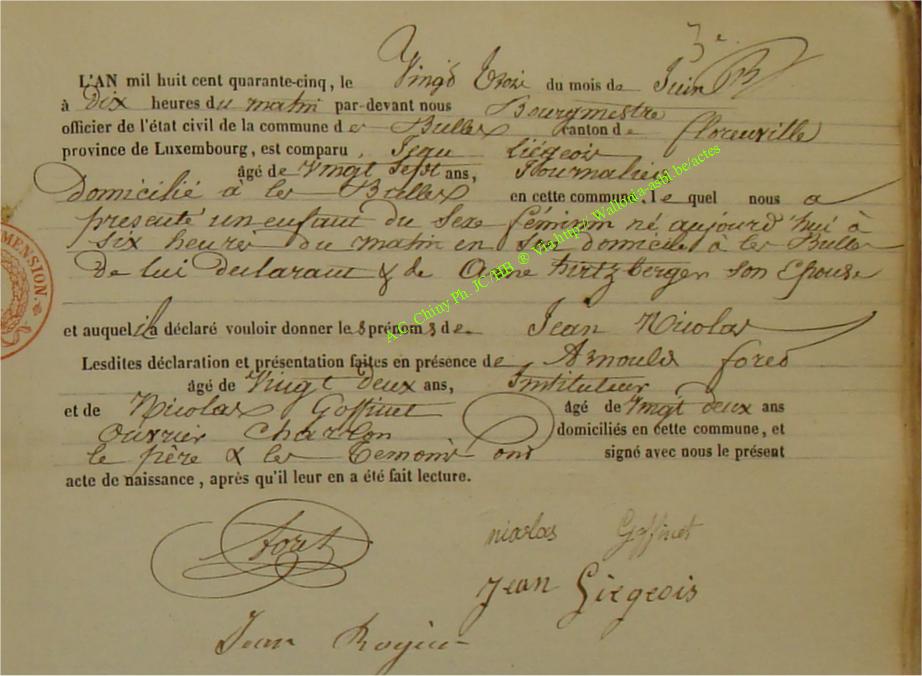 3e
L'AN mil huit cent quarante-cinq, le Vingt Trois du mois de Juin
à Dix heures du matin par-devant nous Bourgmestre
officier de l'état civil de la commune de Bulles canton de florenville
province de Luxembourg, est comparu Jean Liégeois
âgé de vingt sept ans, Journalier
Domicilié à les Bulles en cette commune, le quel nous a
presenté un enfant du Sexe féminin né aujourd'hui à
six heures du matin en son domicile à les Bulles
de lui declarant & de Anne hirtzbergen son Epouse
et auquel il a déclaré vouloir donner les prénoms de Jean Nicolas
Lesdites déclaration et présentation faites en présence de Arnould foret
âgé de Vingt deux ans, Instituteur
et de Nicolas Goffinet âgé de vingt deux ans
ouvrier charron domiciliés en cette commune, et
le père & les temoins ont signé avec nous le présent
acte de naissance, après qu'il leur en a été fait lecture.
foret
nicolas Goffinet
Jean Liegeois
Jean
MENSION.
A.C. Chiny Ph. JC/HB ® Via http://Wallonia-asbl.be/actes